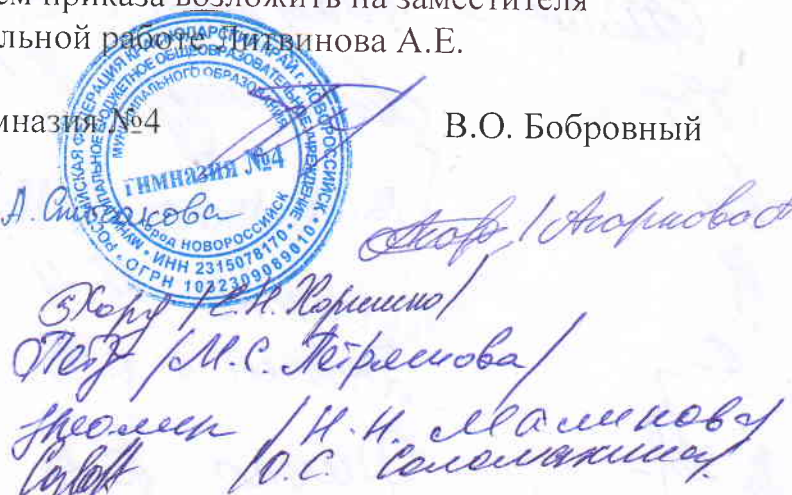 ем приказа возложить на заместителя
льной работе Литвинова А.Е.
мназия №4
В.О. Бобровный
РОССИЙСКАЯ ФЕДЕРАЦИЯ КРАСНОДАРСКИЙ КРАЙ г. НОВОРОССИЙСК
МУНИЦИПАЛЬНОЕ БЮДЖЕТНОЕ ОБЩЕОБРАЗОВАТЕЛЬНОЕ УЧРЕЖДЕНИЕ
МУНИЦИПАЛЬНОГО ОБРАЗОВАНИЯ
гимназия №4
город НОВОРОССИЙСК
ИНН 2315078170
ОГРН 1032309089010
А.
/ Агаркова
/С.Н. Хоришко/
/М.С. Петрянова/
/Н.Н. Малинова/
/О.С. Соломахина/